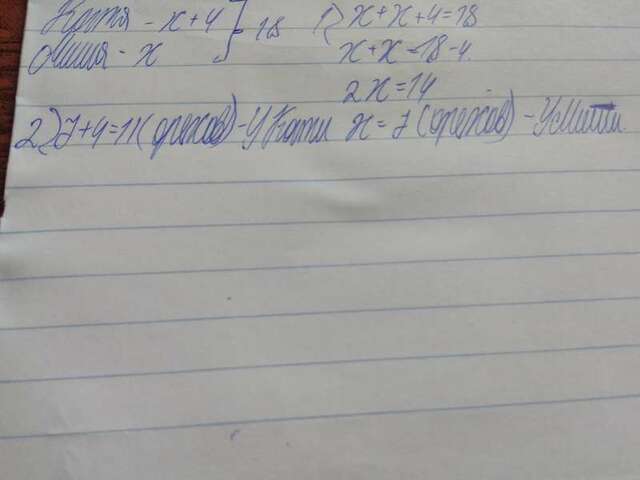 Катя - x + 4 } 18 1) x + x + 4 = 18
Миша - x x + x = 18 - 4
2x = 14
2) 7 + 4 = 11 (орехов) - у Кати x = 7 (орехов) - у Миши.